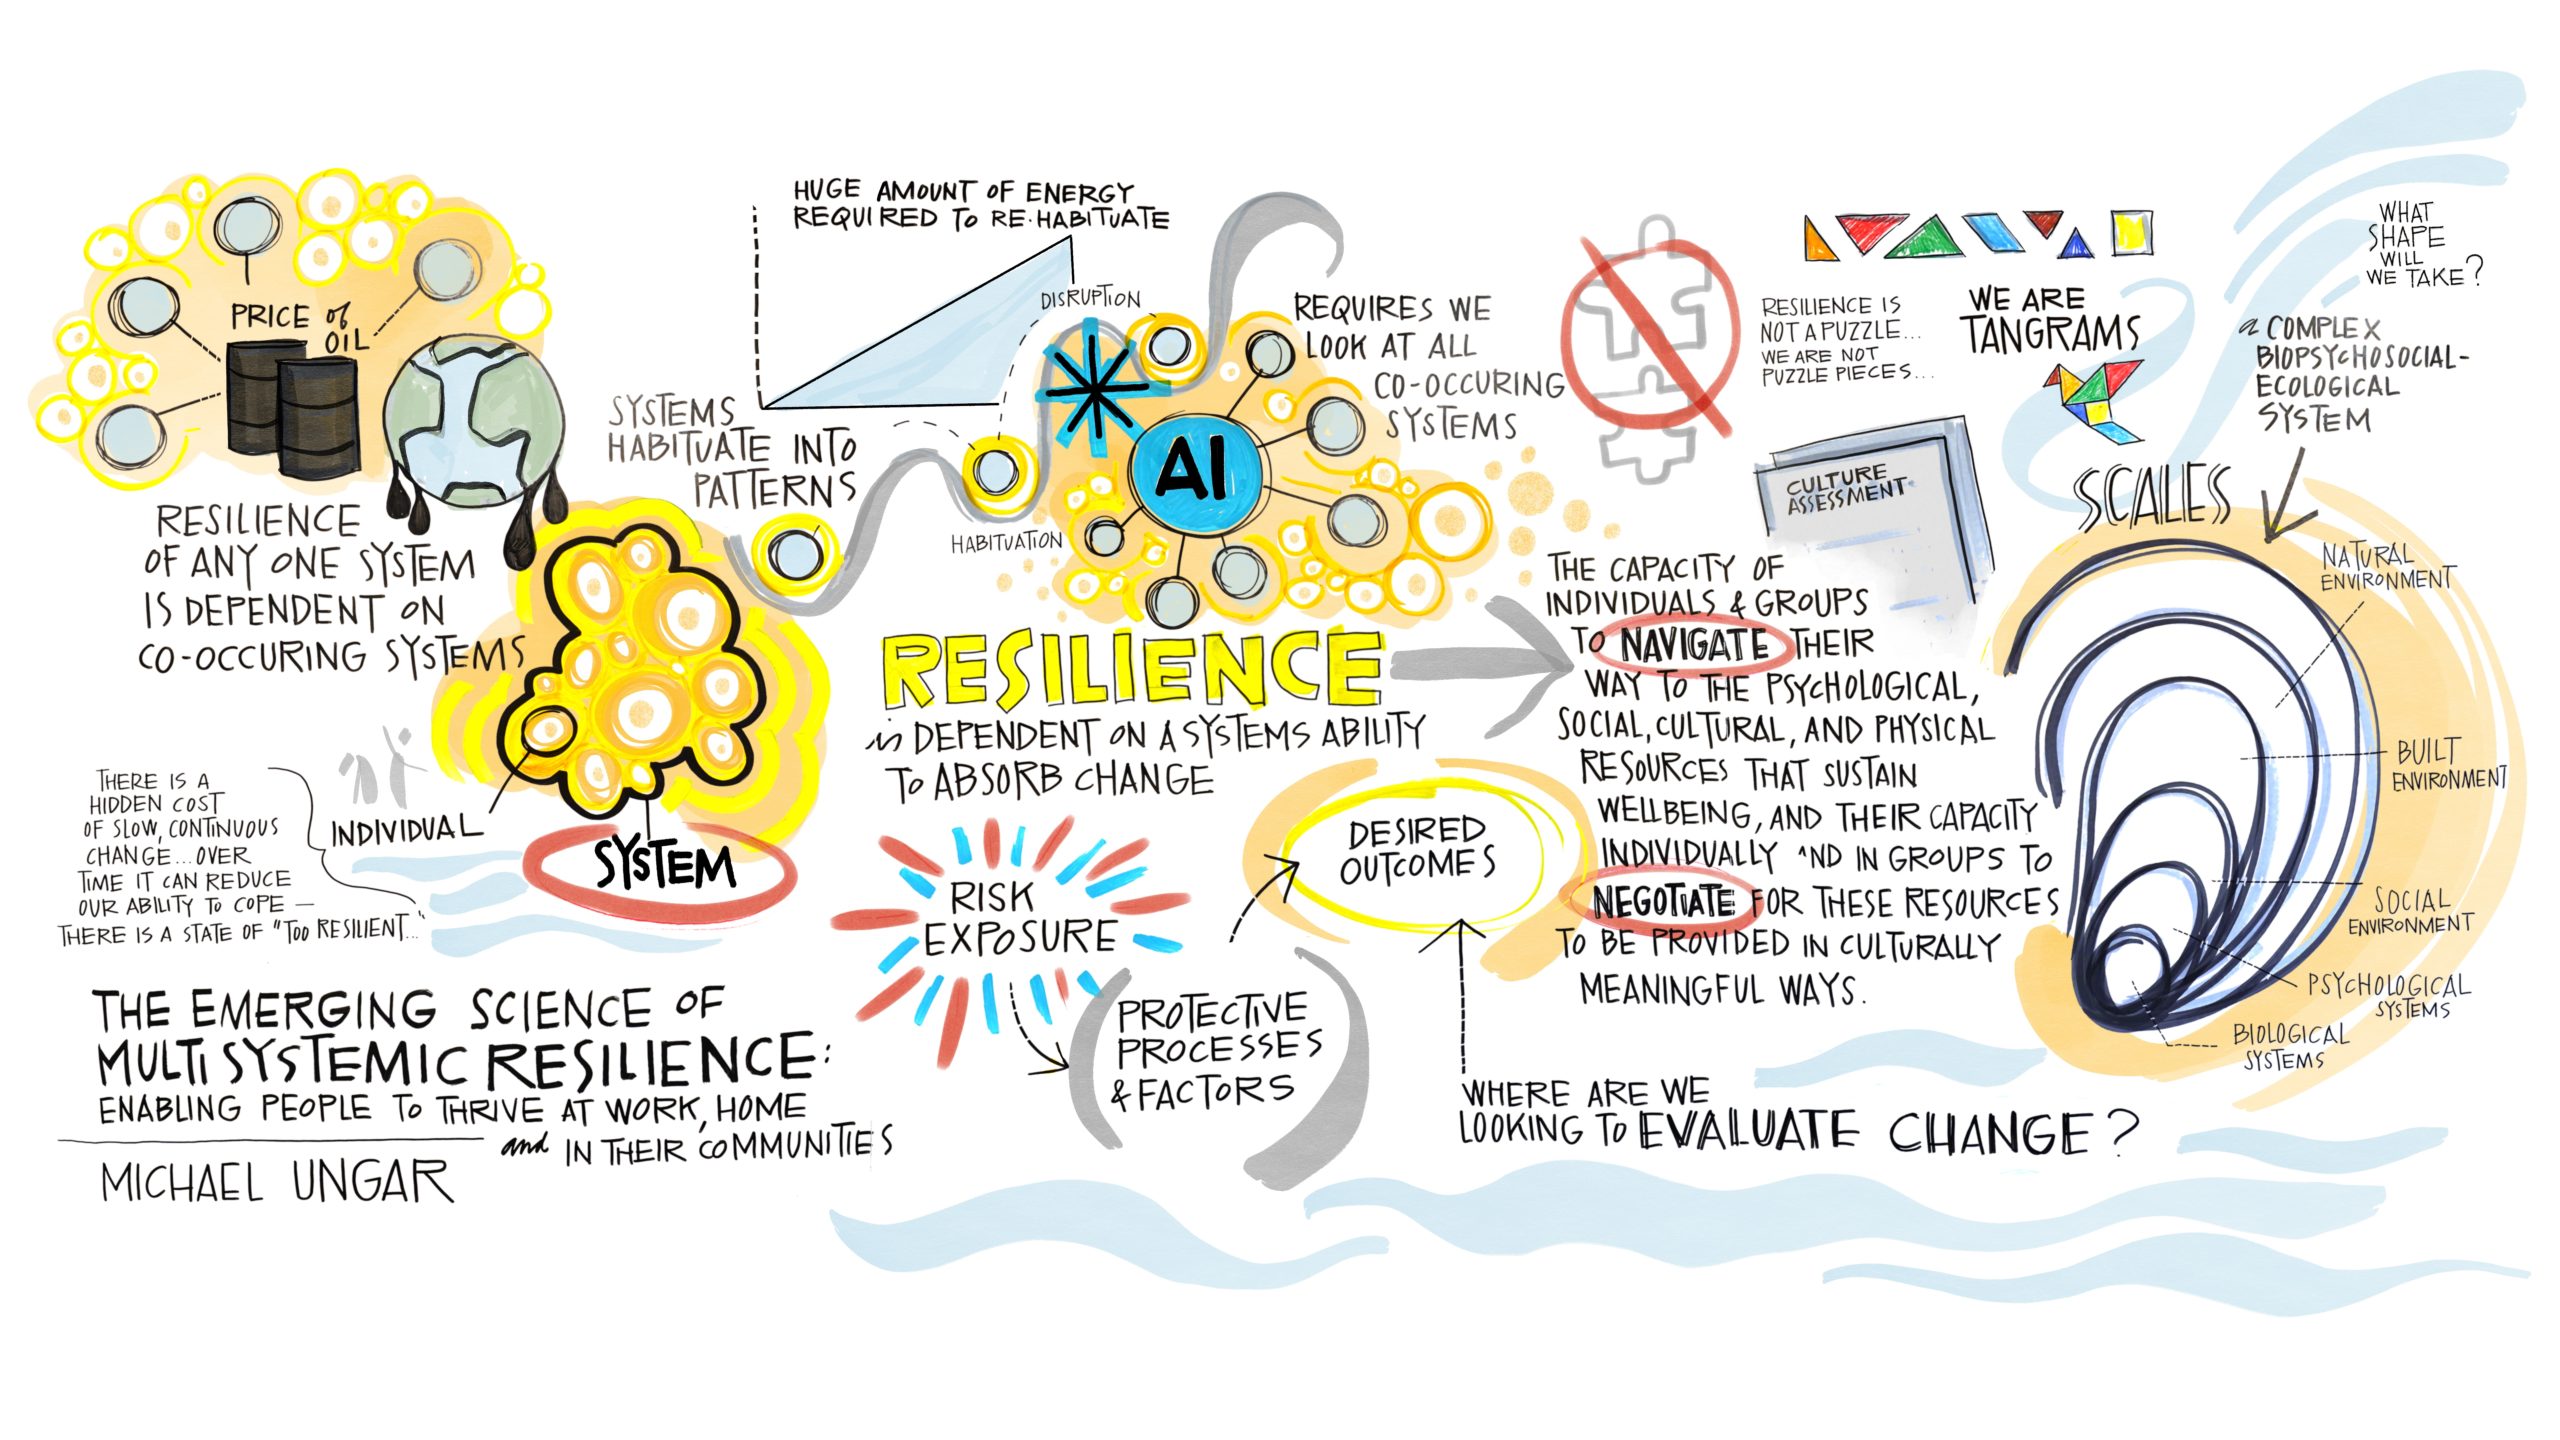 PRICE of
OIL
RESILIENCE
OF ANY ONE SYSTEM
IS DEPENDENT ON
CO-OCCURING SYSTEMS
THERE IS A
HIDDEN COST
OF SLOW, CONTINUOUS
CHANGE...OVER
TIME IT CAN REDUCE
OUR ABILITY TO COPE —
THERE IS A STATE OF "TOO RESILIENT..."
INDIVIDUAL
SYSTEM
THE EMERGING SCIENCE OF
MULTISYSTEMIC RESILIENCE:
ENABLING PEOPLE TO THRIVE AT WORK, HOME
and IN THEIR COMMUNITIES
MICHAEL UNGAR
HUGE AMOUNT OF ENERGY
REQUIRED TO RE-HABITUATE
DISRUPTION
SYSTEMS
HABITUATE INTO
PATTERNS
HABITUATION
AI
REQUIRES WE
LOOK AT ALL
CO-OCCURING
SYSTEMS
RESILIENCE
is DEPENDENT ON A SYSTEMS ABILITY
TO ABSORB CHANGE
RISK
EXPOSURE
PROTECTIVE
PROCESSES
& FACTORS
DESIRED
OUTCOMES
WHERE ARE WE
LOOKING TO EVALUATE CHANGE?
RESILIENCE IS
NOT A PUZZLE...
WE ARE NOT
PUZZLE PIECES...
WE ARE
TANGRAMS
CULTURE
ASSESSMENT
THE CAPACITY OF
INDIVIDUALS & GROUPS
TO NAVIGATE THEIR
WAY TO THE PSYCHOLOGICAL,
SOCIAL, CULTURAL, AND PHYSICAL
RESOURCES THAT SUSTAIN
WELLBEING, AND THEIR CAPACITY
INDIVIDUALLY AND IN GROUPS TO
NEGOTIATE FOR THESE RESOURCES
TO BE PROVIDED IN CULTURALLY
MEANINGFUL WAYS.
WHAT
SHAPE
WILL
WE TAKE?
a COMPLEX
BIOPSYCHOSOCIAL-
ECOLOGICAL
SYSTEM
SCALES
NATURAL
ENVIRONMENT
BUILT
ENVIRONMENT
SOCIAL
ENVIRONMENT
PSYCHOLOGICAL
SYSTEMS
BIOLOGICAL
SYSTEMS